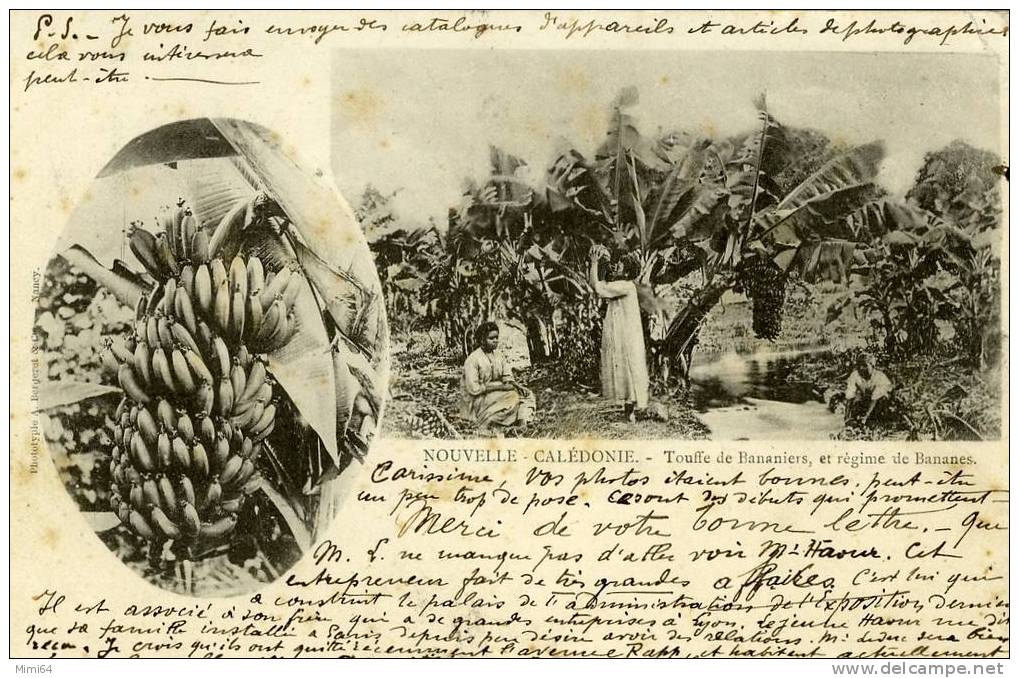 P.S. - Je vous fais envoyer des catalogues d'appareils et articles de photographie
cela vous intéressera
peut-être.
Phototypie A. Bergeret & Cie, Nancy.
NOUVELLE-CALÉDONIE. - Touffe de Bananiers, et régime de Bananes.
Carissime, Vos photos étaient bonnes, peut-être
un peu trop de pose. Ce sont des débuts qui promettent -
Merci de votre bonne lettre. - Que
M. L. ne manque pas d'aller voir Mr Haour. Cet
entrepreneur fait de très grandes affaires. C'est lui qui
a construit le palais de l'administration de l'Exposition dernière
Il est associé à son frère qui a de grandes entreprises à Lyon. Le jeune Haour me dit
que sa famille installée à Paris depuis peu désire avoir des relations. Mr Leduc sera bien
reçu. Je crois qu'ils ont quitté récemment l'avenue Rapp, et habitent actuellement
Mimi64
www.delcampe.net